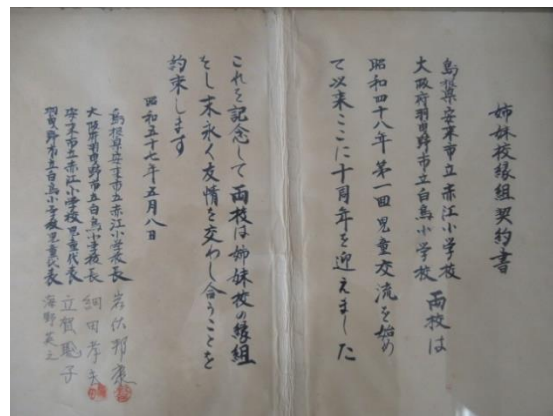 姉妹校縁組契約書
島根県安来市立赤江小学校
大阪府羽曳野市立白鳥小学校
両校は
昭和四十八年第一回児童交流を始め
て以来ここに十周年を迎えました
これを記念して両校は姉妹校の縁組
をし末永く友情を交わし合うことを
約束します
昭和五十七年五月八日
島根県安来市立赤江小学校長
大阪府羽曳野市立白鳥小学校長
安来市立赤江小学校児童代表
羽曳野市立白鳥小学校児童代表